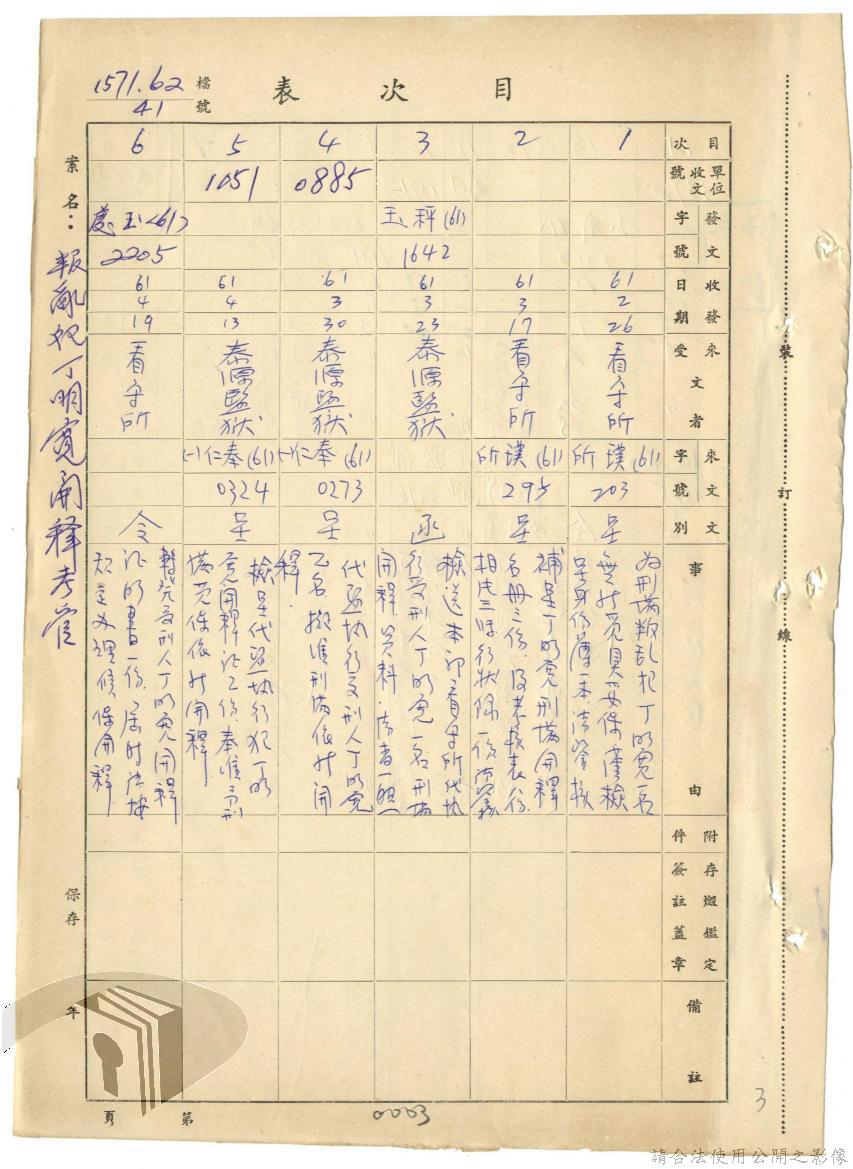 目次表
檔號
1571.62
41
案名：
叛亂犯丁明寬開釋考管
保存
年
目次
單位收文號
發文字號
收發日期
來文受文者
來文字號
文別
事由
附件存燬鑑定簽註蓋章
備註
1
61
2
26
看守所
(61)璞所
203
呈
為刑滿叛乱犯丁明寬一名
呈身份簿一本請鑒核
2
61
3
17
看守所
(61)璞所
295
呈
補呈丁明寬刑滿開釋
名冊三份及考核表
3
(61)秤玉
1642
61
3
23
泰源監獄
函
檢送本部看守所代執
行受刑人丁明寬一名刑滿
開釋資料
4
0885
61
3
30
泰源監獄
(61)奉仁(一)
0273
呈
代監執行受刑人丁明寬
乙名擬准刑滿依所開
釋.
5
1051
61
4
13
泰源監獄
(61)奉仁(一)
0324
呈
檢呈代監執行犯丁明
寬開釋證乙份奉准予刑
滿覓保依所開釋
6
(61)玉
2205
61
4
19
看守所
令
受刑人丁明寬開釋
證明書一份屆時依按
規定办理候保開釋.
裝訂線
第頁
0003
3
請合法使用公開之影像